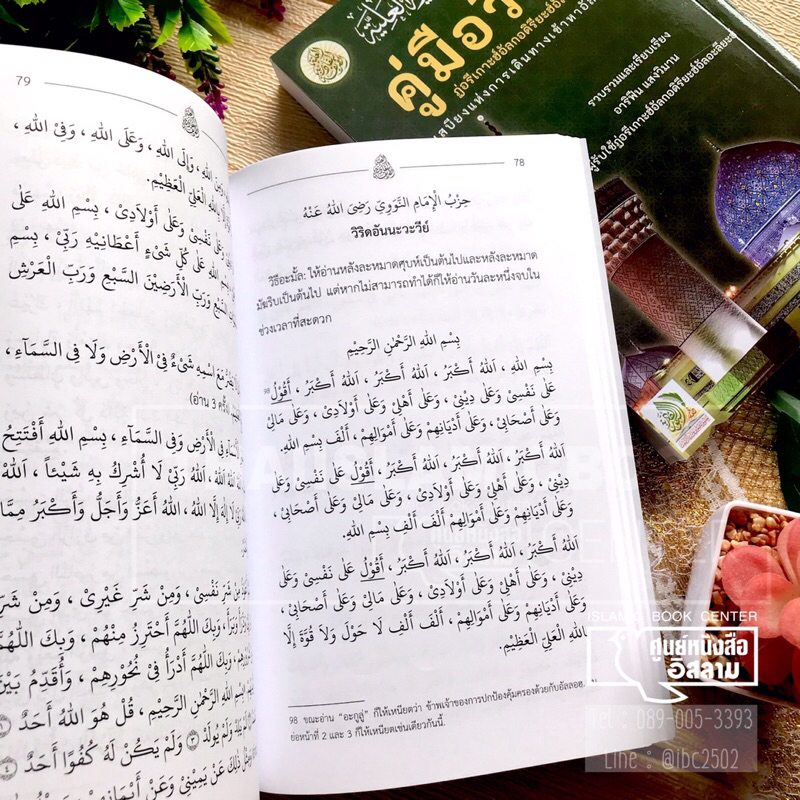 คู่มือวิ
ฏอรีเกาะฮ์อัลกอดิรียะฮ์อั
เสบียงแห่งการเดินทางเข้าหาอัล
รวบรวมและเรียบเรียง
อาริฟีน แสงวิมาน
78
حِزْبُ الْإِمَامِ النَّوَوِيِّ رَضِىَ اللهُ عَنْهُ
วิริดอันนะวะวีย์
วิธีอะมั้ล: ให้อ่านหลังละหมาดศุบห์เป็นต้นไปและหลังละหมาด
มัฆริบเป็นต้นไป แต่หากไม่สามารถทำได้ก็ให้อ่านวันละหนึ่งจบใน
ช่วงเวลาที่สะดวก
بِسْمِ اللهِ الرَّحْمٰنِ الرَّحِيْمِ
بِسْمِ اللهِ ، اَللهُ أَكْبَرُ ، اَللهُ أَكْبَرُ ، اَللهُ أَكْبَرُ ، أَقُوْلُ98
عَلَى نَفْسِىْ وَعَلَى دِيْنِىْ ، وَعَلَى أَهْلِىْ وَعَلَى أَوْلَادِىْ ، وَعَلَى مَالِىْ
وَعَلَى أَصْحَابِىْ ، وَعَلَى أَدْيَانِهِمْ وَعَلَى أَمْوَالِهِمْ ، أَلْفَ بِسْمِ اللهِ.
اَللهُ أَكْبَرُ ، اَللهُ أَكْبَرُ ، اَللهُ أَكْبَرُ ، أَقُوْلُ عَلَى نَفْسِىْ وَعَلَى
دِيْنِىْ ، وَعَلَى أَهْلِىْ وَعَلَى أَوْلَادِىْ ، وَعَلَى مَالِىْ وَعَلَى أَصْحَابِىْ ،
وَعَلَى أَدْيَانِهِمْ وَعَلَى أَمْوَالِهِمْ أَلْفَ أَلْفِ بِسْمِ اللهِ.
اَللهُ أَكْبَرُ ، اَللهُ أَكْبَرُ ، اَللهُ أَكْبَرُ ، أَقُوْلُ عَلَى نَفْسِىْ وَعَلَى
دِيْنِىْ ، وَعَلَى أَهْلِىْ وَعَلَى أَوْلَادِىْ ، وَعَلَى مَالِىْ وَعَلَى أَصْحَابِىْ ،
وَعَلَى أَدْيَانِهِمْ وَعَلَى أَمْوَالِهِمْ ، أَلْفَ أَلْفِ لَا حَوْلَ وَلَا قُوَّةَ إِلَّا
بِاللهِ الْعَلِيِّ الْعَظِيْمِ.
98 ขณะอ่าน “อะกูลู่” ก็ให้เหนียตว่า ข้าพเจ้าของการปกป้องคุ้มครองด้วยกับอัลลอฮ.
ย่อหน้าที่ 2 และ 3 ก็ให้เหนียตเช่นเดียวกันนี้.
79
اللهِ ، وَإِلَى اللهِ ، وَعَلَى اللهِ ، وَفِىْ اللهِ ،
بِاللهِ الْعَلِيِّ الْعَظِيْمِ.
عَلَى نَفْسِىْ وَعَلَى أَوْلَادِىْ ، بِسْمِ اللهِ عَلَى
اللهِ عَلَى كُلِّ شَىْءٍ أَعْطَانِيْهِ رَبِّىْ ، بِسْمِ
السَّبْعِ وَرَبِّ الْأَرَضِيْنَ السَّبْعِ وَرَبِّ الْعَرْشِ
مَعَ اسْمِهِ شَىْءٌ فِى الْأَرْضِ وَلَا فِى السَّمَآءِ ،
(อ่าน 3 ครั้ง)
فِى الْأَرْضِ وَفِى السَّمَآءِ ، بِسْمِ اللهِ أَفْتَتِحُ
اَللهُ ، اَللهُ رَبِّىْ لَا أُشْرِكُ بِهِ شَيْئاً ، اَللهُ
لَا إِلٰهَ إِلَّا اللهُ ، اَللهُ أَعَزُّ وَأَجَلُّ وَأَكْبَرُ مِمَّا
مِنْ شَرِّ نَفْسِىْ ، وَمِنْ شَرِّ غَيْرِىْ ، وَمِنْ شَرِّ
، وَبِكَ اللّٰهُمَّ أَحْتَرِزُ مِنْهُمْ ، وَبِكَ اللّٰهُمَّ
، وَبِكَ اللّٰهُمَّ أَدْرَأُ فِىْ نُحُوْرِهِمْ ، وَأُقَدِّمُ بَيْنَ
اللهِ الرَّحْمٰنِ الرَّحِيْمِ ، قُلْ هُوَ اللهُ أَحَدٌ ۝١
وَلَمْ يُوْلَدْ ۝٣ وَلَمْ يَكُنْ لَهُ كُفُوًا أَحَدٌ ۝٤
ذٰلِكَ عَنْ يَمِيْنِىْ وَعَنْ أَيْمَانِهِمْ
ISLAMIC BOOK CENTER
ศูนย์หนังสือ
อิสลาม
Tel : 089-005-3393
Line : @ibc2502